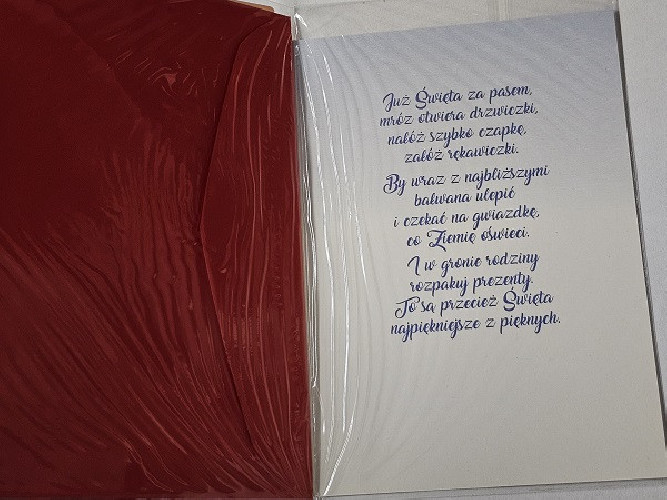 Już Święta za pasem,
mróz otwiera drzwiczki,
nałóż szybko czapkę,
załóż rękawiczki.
By wraz z najbliższymi
bałwana ulepić
i czekać na gwiazdkę,
co Ziemię oświeci.
I w gronie rodziny
rozpakuj prezenty.
To są przecież Święta
najpiękniejsze z pięknych.